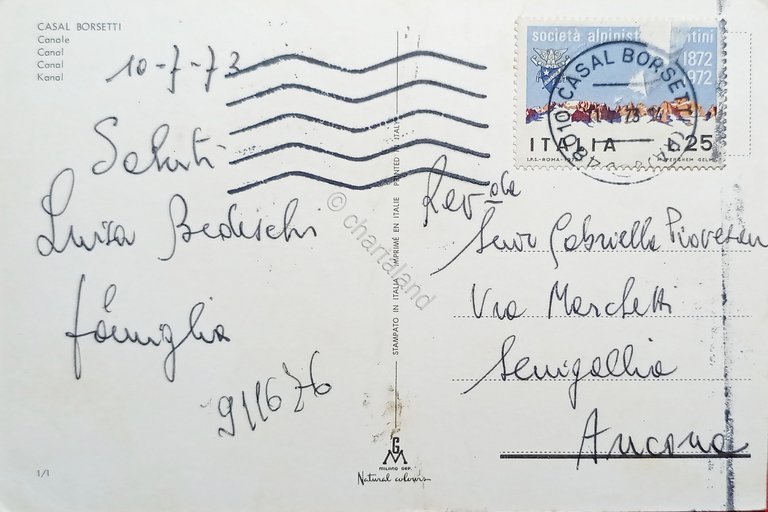 CASAL BORSETTI
Canale
Canal
Canal
Kanal
10-7-73
Saluti
Luisa Bedeschi
famiglia
911676
1/1
STAMPATO IN ITALIA IMPRIMÉ EN ITALIE PRINTED IN ITALY
GM
MILANO DEP.
Natural colours
© chartaland
società alpinisti
1872
1972
ITALIA L.25
I.P.S.-ROMA-
CASAL BORSETTI
Rev.da
Suor Gabriella Piovesan
Via Marchetti
Senigallia
Ancona